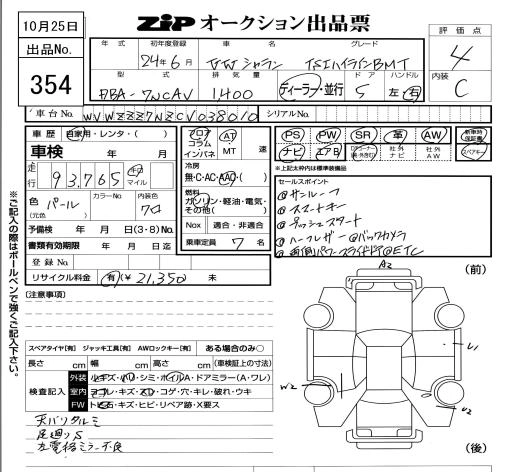 10月25日
ZIP オークション出品票
評価点
4
出品No.
354
年式 初年度登録 車名 グレード
24年6月 VWシャラン TSIハイラインBMT
内装
C
型式 排気量 ドア ハンドル
DBA-7NCAV 1,400 ディーラー・並行 5 左・右
車台No. WVWZZZ7NZCV038010 シリアルNo.
車歴 自家用・レンタ・( )
車検 年 月
走行 93,765 キロ マイル
色 パール カラーNo. 内装色 クロ
(元色)
予備検 年 月 日(3・8)No.
書類有効期限 年 月 日迄
登録No.
リサイクル料金 有(¥ 21,350 未
フロア コラム インパネ
AT MT 速
冷房
無・C・AC・AAC・( )
燃料
ガソリン・軽油・電気・その他( )
Nox 適合・非適合
乗車定員 7 名
PS PW SR 革 AW 新車時保証書
ナビ エアB 社外ナビ 社外AW スペアキー
*上記太枠内は標準装備品
セールスポイント
①サンルーフ
②スマートキー
③プッシュスタート
④ハーフレザー⑤バックカメラ
⑥両側パワースライドドア⑦ETC
※ご記入の際はボールペンで強くご記入下さい。
[注意事項]
スペアタイヤ[有] ジャッキ工具[有] AWロックキー[有] ある場合のみ○
長さ cm 幅 cm 高さ cm (車検証上の寸法)
検査記入
外装 小キズ・凹・シミ・ホイルA・ドアミラー(A・ワレ)
室内 ヨゴレ・キズ・スレ・コゲ・穴・キレ・破れ・ウキ
FW トビ石・キズ・ヒビ・リペア跡・X要ス
天バリタルミ
足廻りS
左電格ミラー不良
A2
(前)
U1
W2
U2
(後)